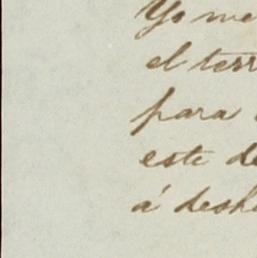 Yo me
el terr
para
este de
á desh